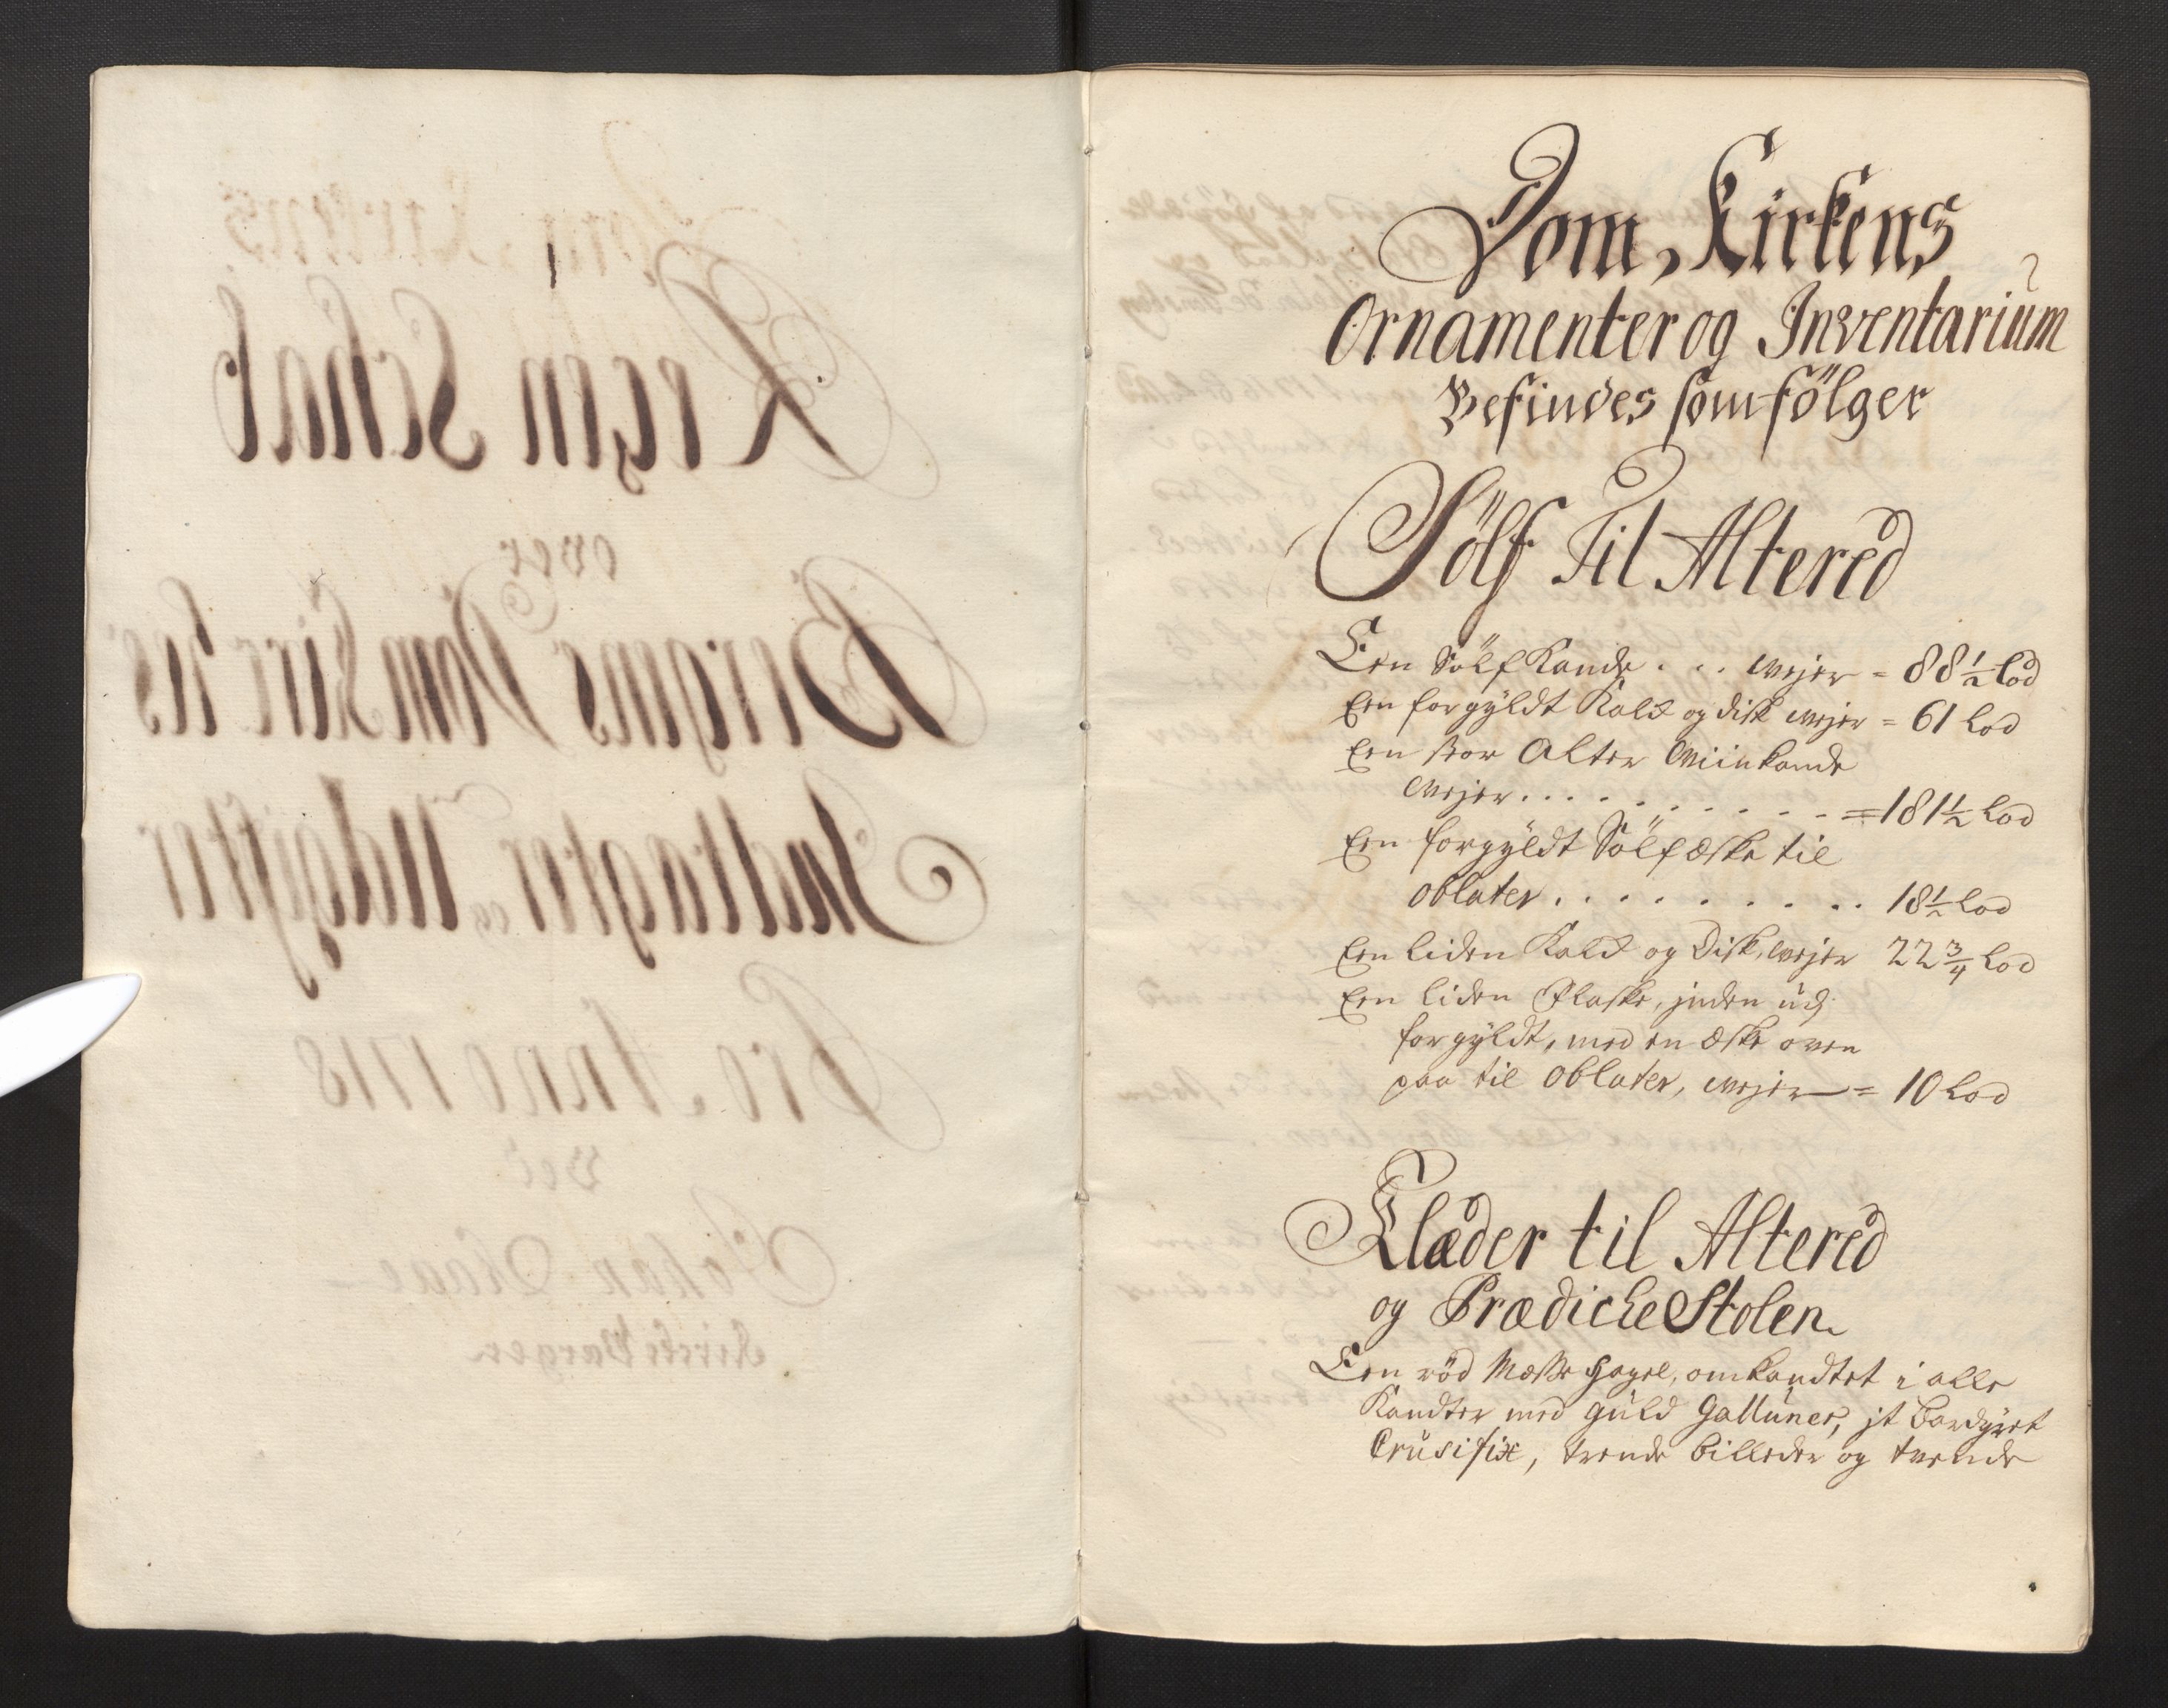 Dom, Kirkens
Ornamenter og Inventarium
Befindes som fölger
Sölf Til Altered
Een Sölf Kande . . . weyer = 88 1/2 Lod
Een forgyldt Kalk og disk weyer = 61 Lod
Een stor Alter Wiinkande
weyer . . . . . . . . . . = 181 1/2 Lod
Een forgyldt Sölf æske til
oblater . . . . . . . . . . 18 1/2 Lod
Een liden Kalk og Disk, weyer 22 3/4 Lod
Een liden Flaske, inden üd
forgyldt, med en Æske oven
paa til Oblater, weyer = 10 Lod
Klæder til Altered
og Prædicke Stolen
Een röd Messe Hagel, omkandtet i alle
Kandter med güld Gallüner, it Bordyret
Crüsifix, trende billeder og tvende